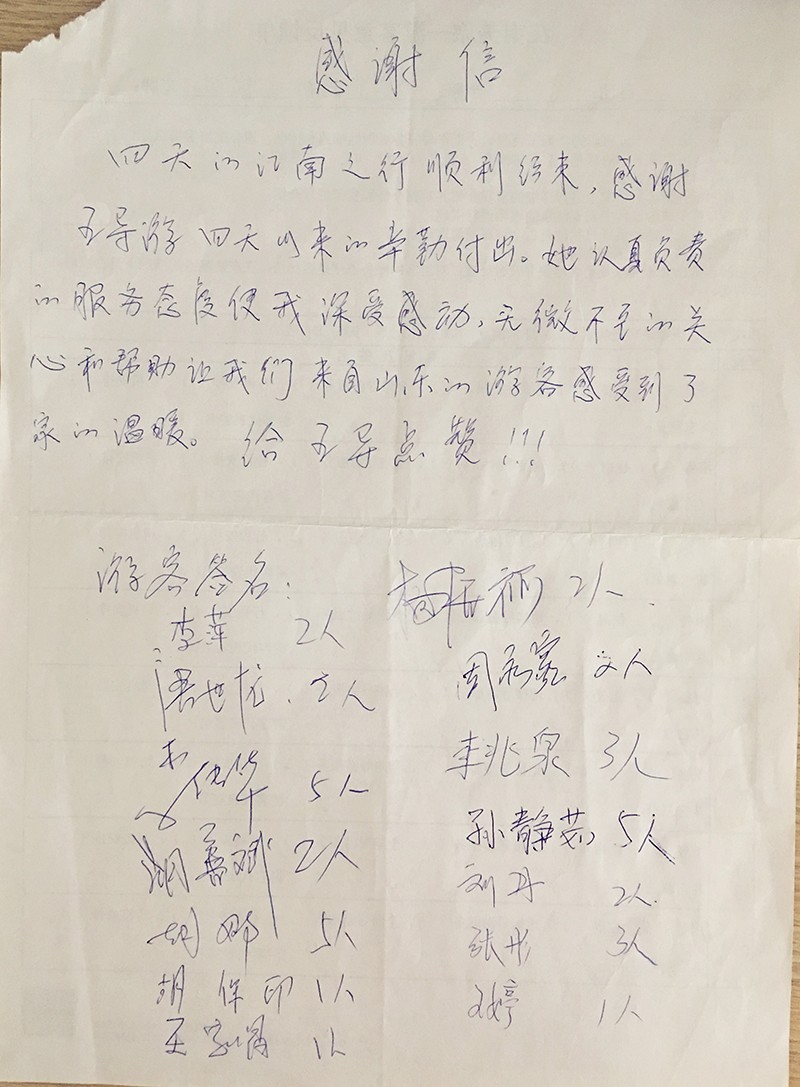 感谢信
四天的江南之行顺利结束,感谢
王导游四天以来的辛勤付出。她认真负责
的服务态度使我深受感动,无微不至的关
心和帮助让我们来自山东的游客感受到了
家的温暖。给王导点赞!!!
游客签名:
2人.
李萍 2人
周 2人
2人
李兆泉 3人
李伟华 5人
孙静茹 5人
胡善斌 2人
刘丹 2人.
胡娜 5人
张彤 3人
胡保印 1人
王婷 1人
王 1人